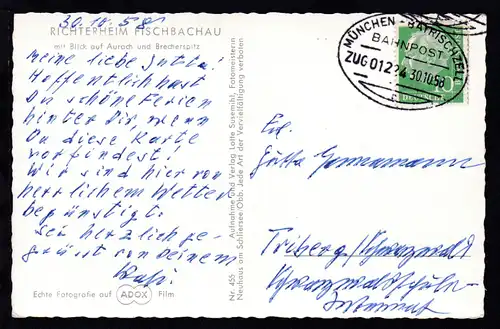 30.10.58
RICHTERHEIM FISCHBACHAU
mit Blick auf Aurach und Brecherspitz
Meine liebe Jutta!
Hoffentlich hast
Du schöne Ferien
hinter Dir, wenn
Du diese Karte
vorfindest!
Wir sind hier von
herrlichem Wetter
begünstigt.
Sei herzlich ge-
grüsst von Deinem
Echte Fotografie auf ADOX Film
Nr. 455 Aufnahme und Verlag Lotte Susemihl, Fotomeisterin
Neuhaus am Schliersee/Obb. Jede Art der Vervielfältigung verboten
MÜNCHEN - BAYRISCHZELL
BAHNPOST
ZUG 01234 30.10.58
Jutta
Triberg/Schwarzwald
Schwarzwaldschule-
Internat